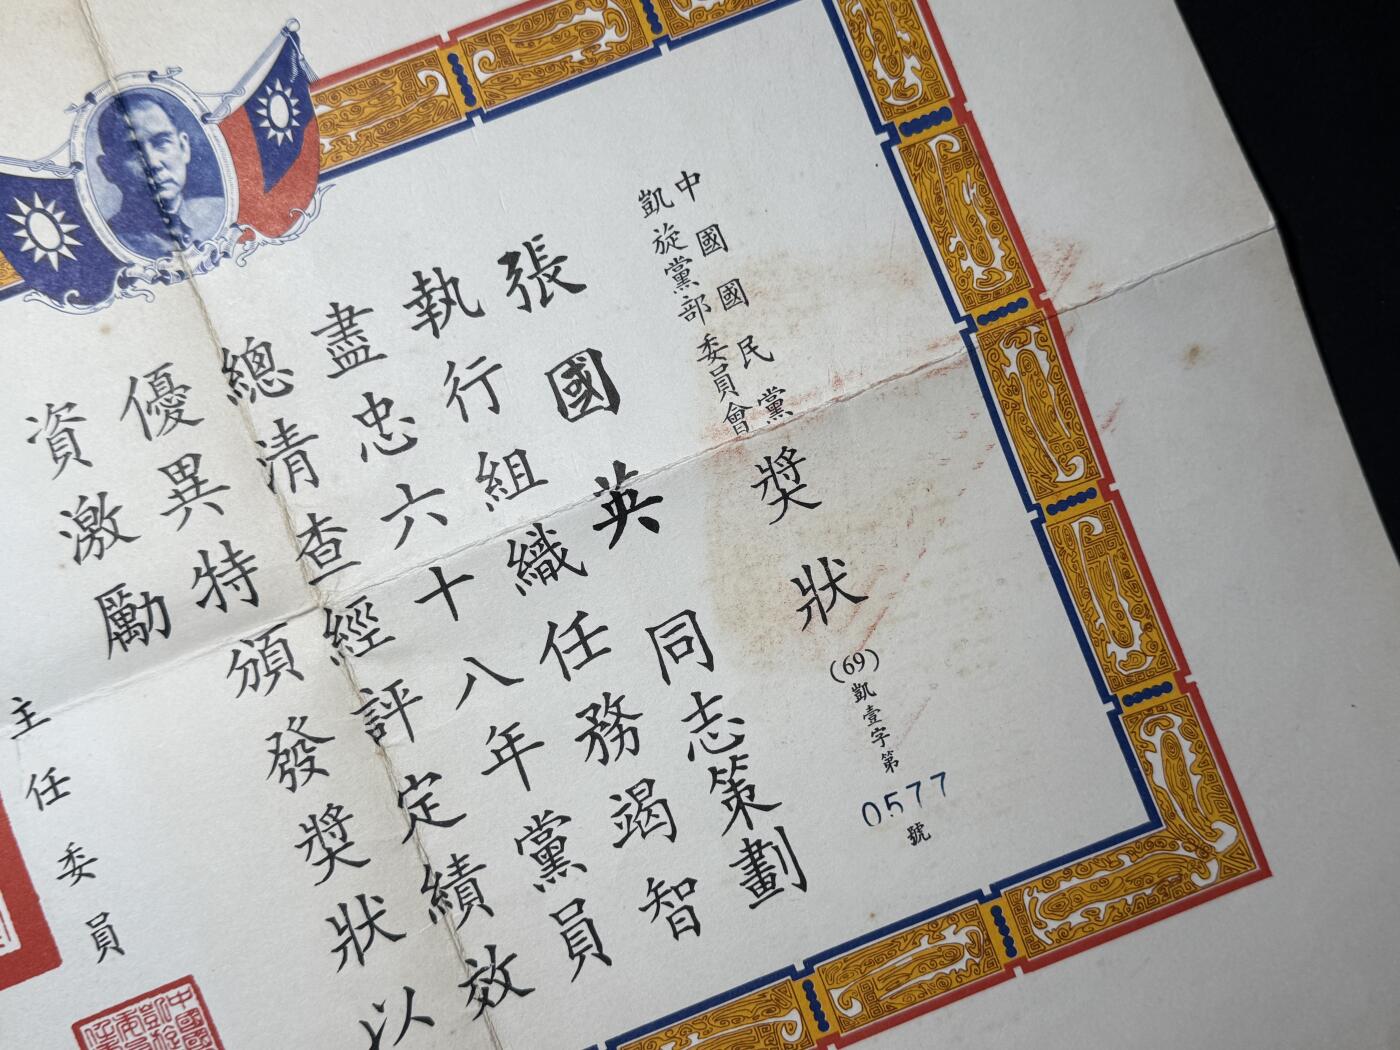 中國國民黨
凱旋黨部委員會
獎狀
(69)凱壹字第0577號
張國英同志策劃
執行組織任務竭智
盡忠六十八年黨員
總清查經評定績效
優異特頒發獎狀以
資激勵
主任委員